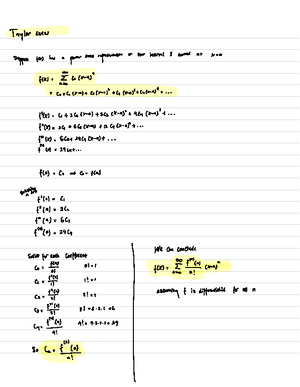 Taylor series
Suppose f(x) has a power series representation on the interval I centred at x=a
f(x) = ∑ Cₙ (x-a)ⁿ
= C₀ + C₁ (x-a) + C₂ (x-a)² + C₃ (x-a)³ + C₄ (x-a)⁴ + ...
f'(x) = C₁ + 2C₂ (x-a) + 3C₃ (x-a)² + 4C₄ (x-a)³ + ...
f''(x) = 2C₂ + 6C₃ (x-a) + 12C₄ (x-a)² + ...
f'''(x) = 6C₃ + 24C₄ (x-a) + ...
f⁽⁴⁾(x) = 24C₄ + ...
f(a) = C₀ ⇒ C₀ = f(a)
f'(a) = C₁
f''(a) = 2C₂
f'''(a) = 6C₃
f⁽⁴⁾(a) = 24C₄
Solve for each coefficient
C₀ = f(a)/0! 0! = 1
C₁ = f'(a)/1! 1! = 1
C₂ = f''(a)/2! 2! = 2
C₃ = f'''(a)/3! 3! = 3·2·1 = 6
C₄ = f⁽⁴⁾(a)/4! 4! = 4·3·2·1 = 24
So Cₙ = f⁽ⁿ⁾(a)/n!
We can conclude
f(x) = ∑ f⁽ⁿ⁾(a)/n! (x-a)ⁿ
assuming f is differentiable for all n